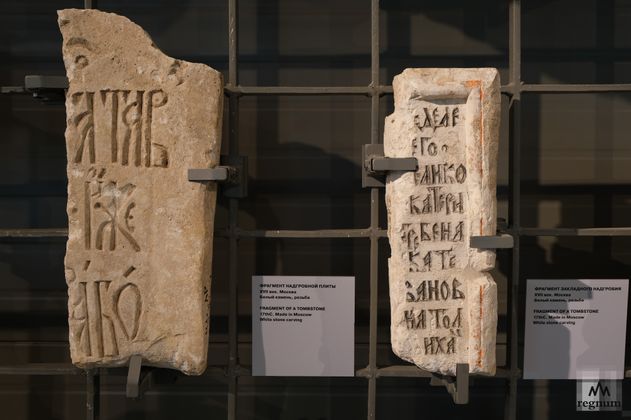 ЕДЕЛЕ
ЕГО
ЛИКО
КАТЕРИ
РЕБЕНА
КАТЕ
ЗАНОВ
НАТОЛ
ИХА
ФРАГМЕНТ НАДГРОБНОЙ ПЛИТЫ
XVII век. Москва
Белый камень, резьба
FRAGMENT OF A TOMBSTONE
17thC. Made in Moscow
White stone carving
ФРАГМЕНТ ЗАКЛАДНОГО НАДГРОБИЯ
XVII век. Москва
Белый камень, резьба
FRAGMENT OF A TOMBSTONE
17thC. Made in Moscow
White stone carving
regnum